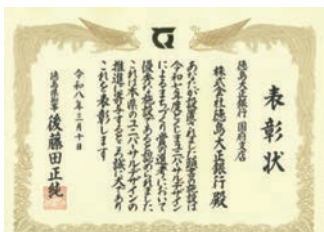 表彰状
徳島大正銀行 国府支店
株式会社徳島大正銀行 殿
あなたが設置されました頭書の施設は
令和七年度とくしまユニバーサルデザイン
によるまちづくり賞の選考において
優秀な施設であると認められました
これは本県のユニバーサルデザインの
推進に寄与するところ誠に大であり
これを表彰します
令和八年三月十日
徳島県知事 後藤田正純